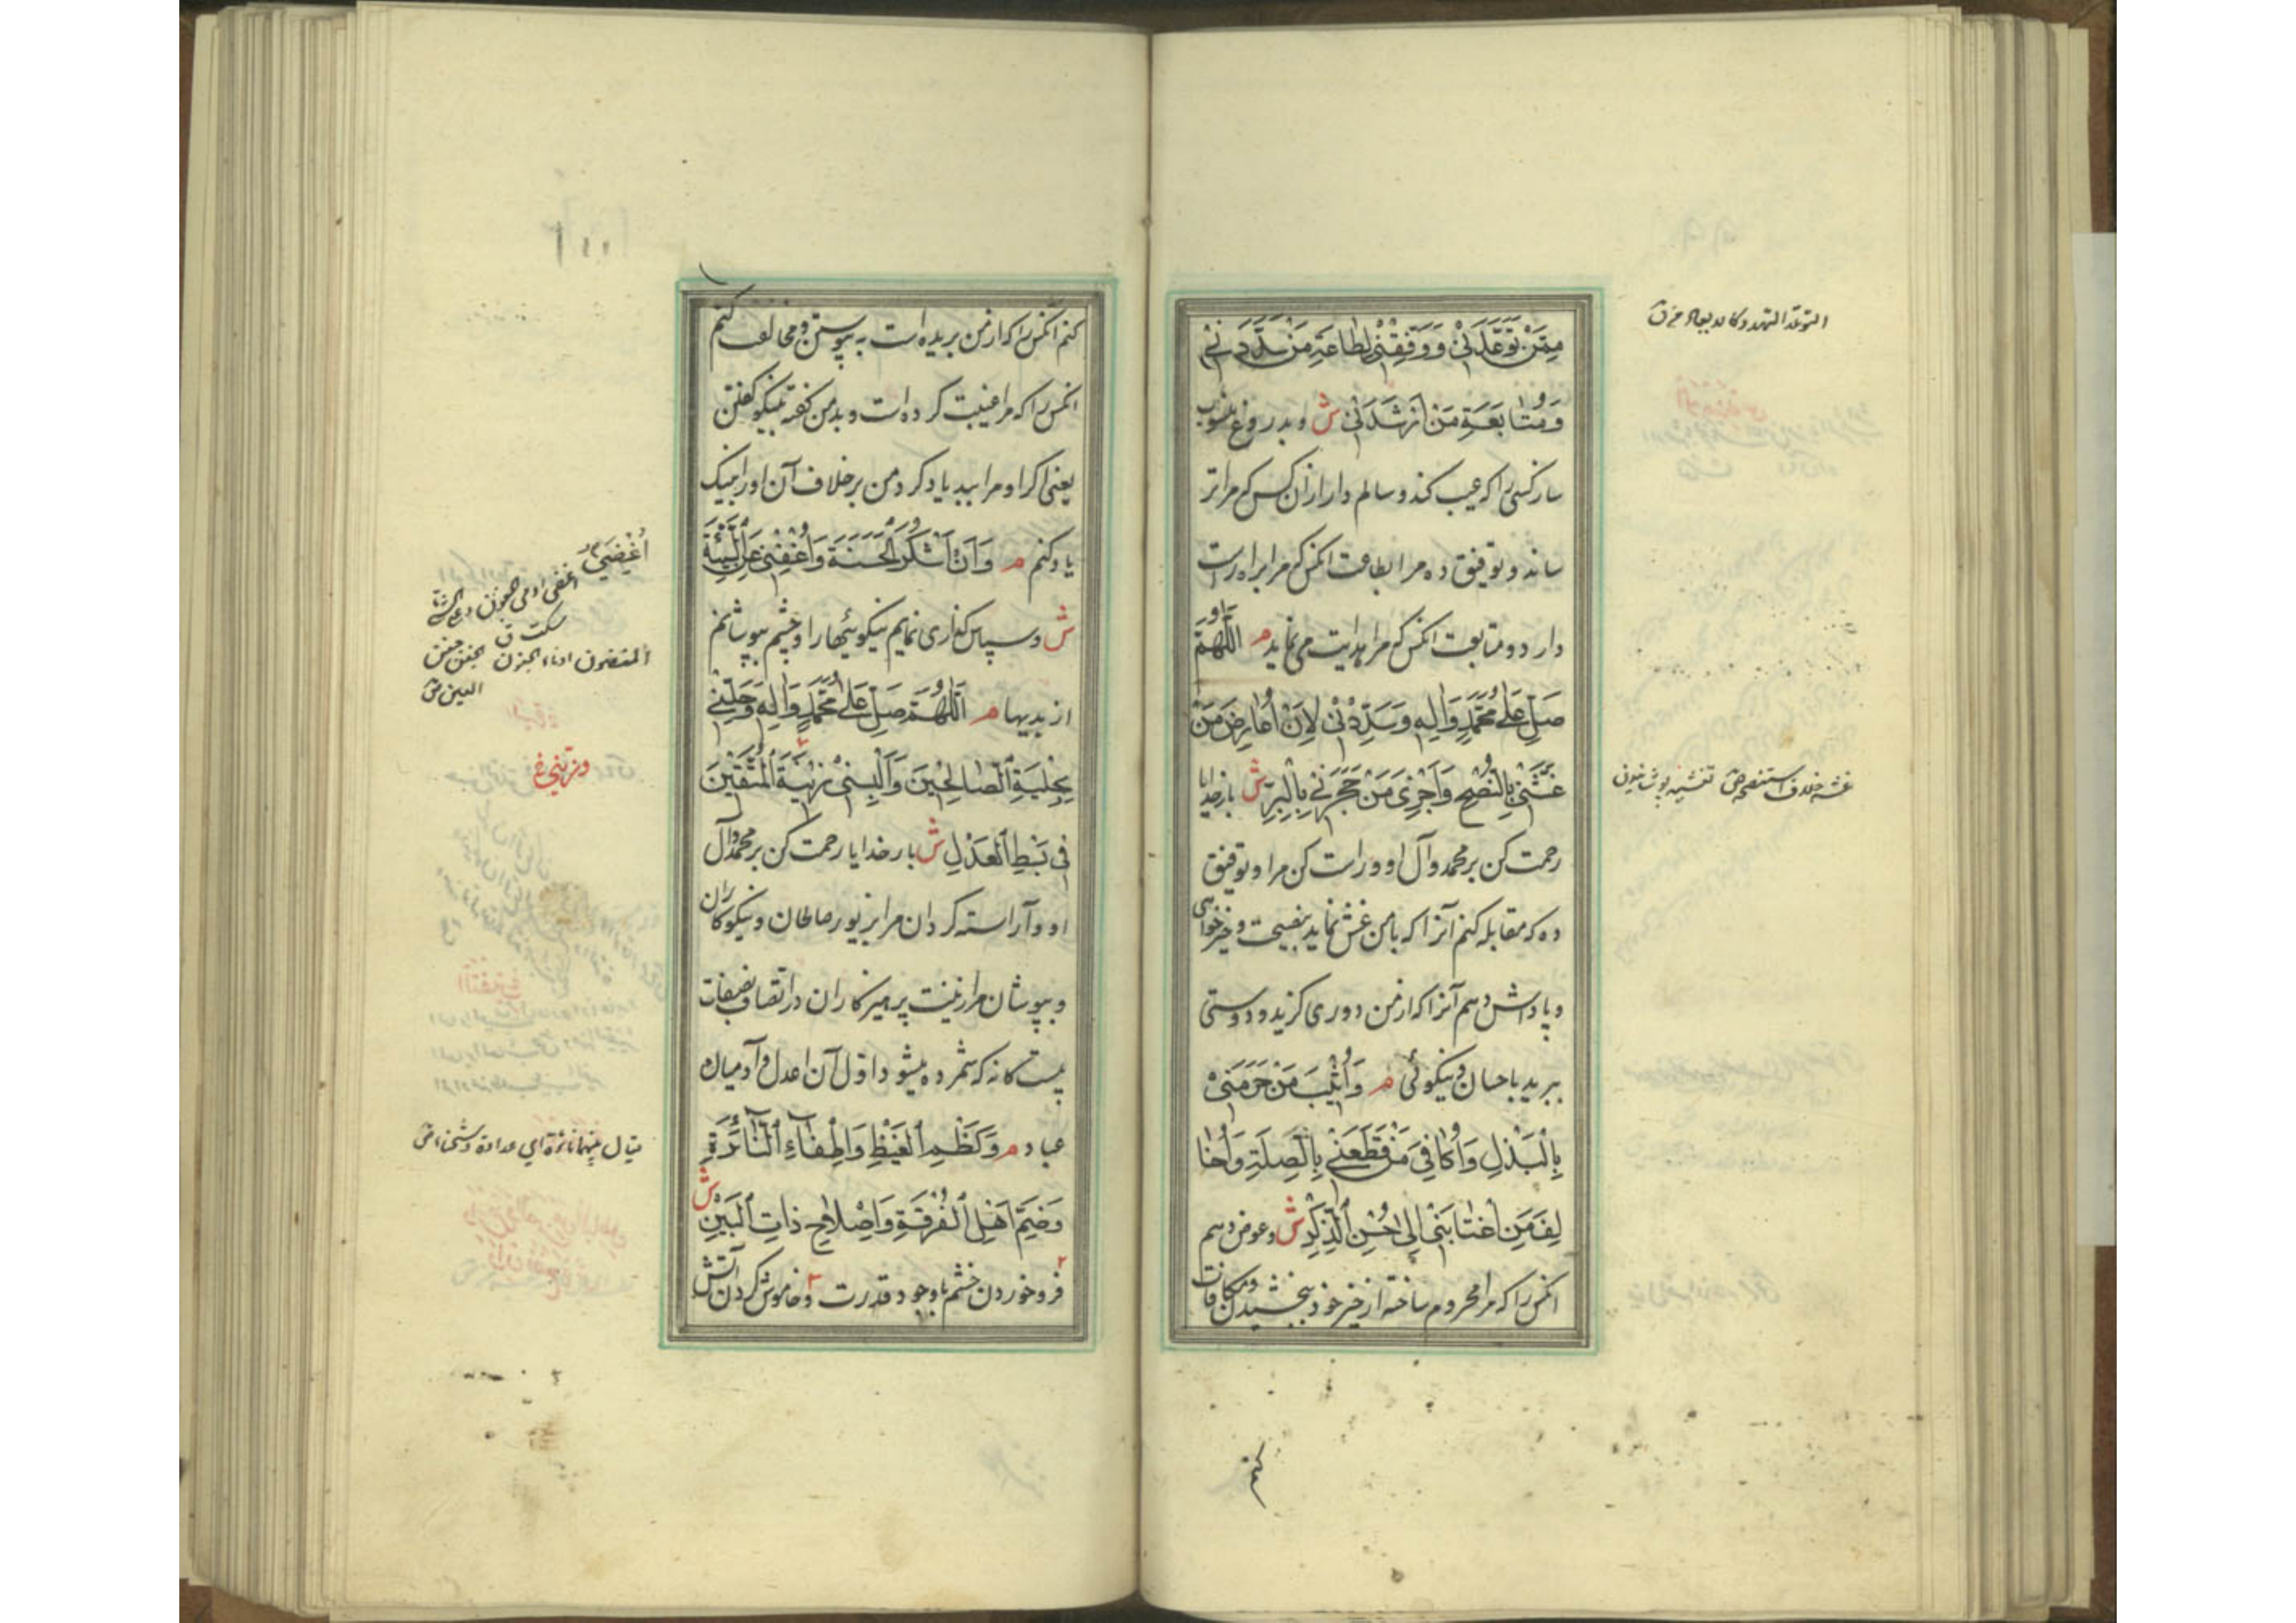 مِمَّنْ تَوَعَّدَنِيْ وَوَفِّقْنِيْ لِطَاعَةِ مَنْ سَدَّدَنِيْ
وَمُتَابَعَةِ مَنْ اَرْشَدَنِيْ ش وبدروغ منسوب
ساز كسى را كه عيب كند وسالم دار از آن كس كه مرا تر
ساند وتوفيق ده مرا بطاعت انكس كه مرا براه راست
دارد ومتابعت انكس كه مرا هدايت مى نمايد م اَللّٰهُمَّ
صَلِّ عَلٰى مُحَمَّدٍ وَاٰلِهِ وَسَدِّدْنِيْ لِاَنْ اُعَارِضَ مَنْ
غَشَّنِيْ بِالنُّصْحِ وَاَجْزِىَ مَنْ هَجَرَنِيْ بِالْبِرِّ ش بارخدايا
رحمت كن بر محمد وآل او وراست كن مرا وتوفيق
ده كه مقابله كنم آنرا كه با من غش نمايد بنصيحت وخيرخواهى
وپاداش دهم آنرا كه از من دورى گزيد ودوستى
ببريد باحسان ونيكوئى م وَاُثِيْبَ مَنْ حَرَمَنِيْ
بِالْبَذْلِ وَاُكَافِىَ مَنْ قَطَعَنِيْ بِالصِّلَةِ وَاُخَا
لِفَ مَنِ اغْتَابَنِيْ اِلٰى حُسْنِ الذِّكْرِ ش وعوض دهم
انكس را كه مرا محروم ساخته از خير خود ببخشيدن ومكافات
كنم
كنم انكس را كه از من بريده است به پيوستن ومخالفت كنم
انكس را كه مرا غيبت كرده است وبد من گفته بنيكو گفتن
يعنى اگر او مرا ببد ياد كرد من برخلاف آن او را بنيك
ياد كنم م وَاَنْ اَشْكُرَ الْحَسَنَةَ وَاُغْضِىَ عَنِ السَّيِّئَةِ
ش وسپاس گذارى نمايم نيكوئيها را وچشم بپوشانم
از بديها م اَللّٰهُمَّ صَلِّ عَلٰى مُحَمَّدٍ وَاٰلِهِ وَحَلِّنِيْ
بِحِلْيَةِ الصَّالِحِيْنَ وَاَلْبِسْنِيْ زِيْنَةَ الْمُتَّقِيْنَ
فِي بَسْطِ الْعَدْلِ ش بارخدايا رحمت كن بر محمد وآل
او وآراسته گردان مرا بزيور صالحان ونيكوكاران
وبپوشان مرا زينت پرهيزكاران در اتصاف بصفات
بيست گانه كه شمرده ميشود اول آن عدل وآدميان
عباد م وَكَظْمِ الْغَيْظِ وَاِطْفَاءِ النَّائِرَةِ
وَضَمِّ اَهْلِ الْفُرْقَةِ وَاِصْلَاحِ ذَاتِ الْبَيْنِ ش
فرو خوردن خشم با وجود قدرت وخاموش كردن آتش
يقال بينهما نائرة اي عداوة وشحناء